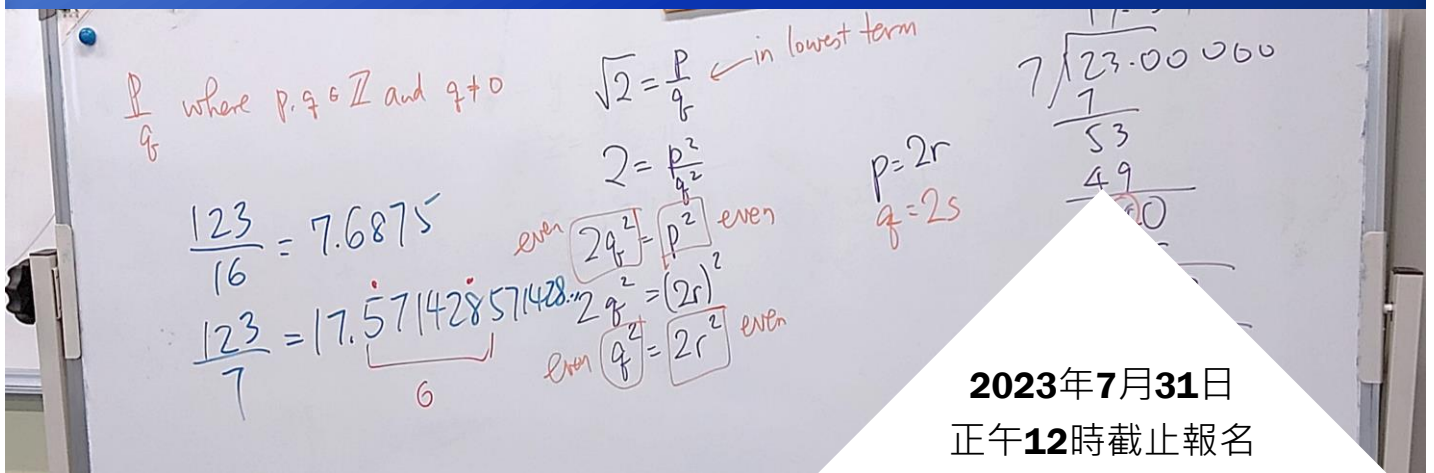 p/q where p, q ∈ ℤ and q ≠ 0
123/16 = 7.6875
123/7 = 17.571428571428...
6
√2 = p/q ← in lowest term
2 = p²/q²
even 2q² = p² even
2q² = (2r)²
even q² = 2r² even
p = 2r
q = 2s
7 123.00000
7
53
49
2023年7月31日
正午12時截止報名